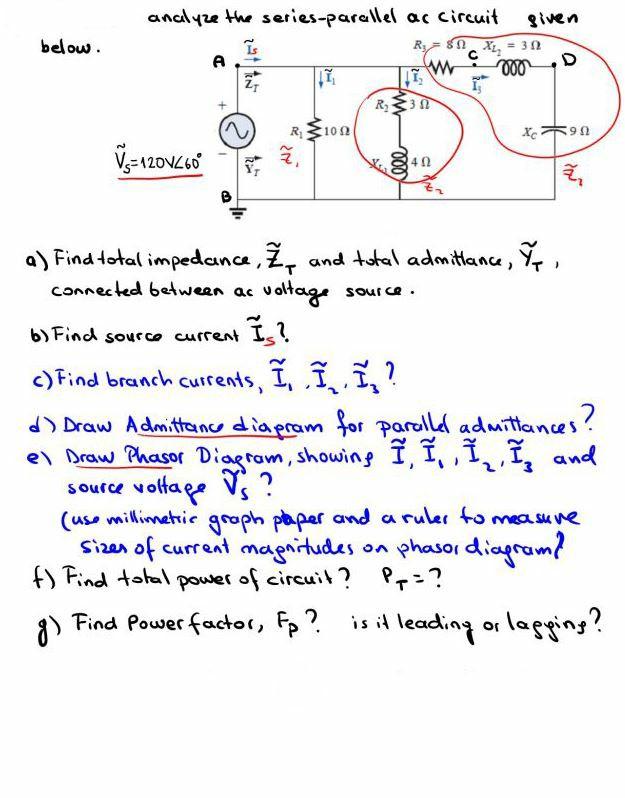 analyze the series-parallel ac circuit given
below.
Ĩs
R₃ = 8 Ω
X_L₂ = 3 Ω
A
C
D
Z̃_T
Ĩ₁
Ĩ₂
Ĩ₃
+
R₂
3 Ω
R₁
10 Ω
X_C
9 Ω
Ṽs=120V∠60°
−
Ỹ_T
Z̃₁
X_L₁
4 Ω
Z̃₂
B
a) Find total impedance, Z̃_T and total admittance, Ỹ_T ,
connected between ac voltage source.
b) Find source current Ĩs?
c) Find branch currents, Ĩ₁, Ĩ₂, Ĩ₃?
d) Draw Admittance diagram for parallel admittances?
e) Draw Phasor Diagram, showing Ĩ, Ĩ₁, Ĩ₂, Ĩ₃ and
source voltage Ṽs ?
(use millimetric graph paper and a ruler to measure
sizes of current magnitudes on phasor diagram?
f) Find total power of circuit? P_T = ?
g) Find Power factor, Fp? is it leading or lagging?